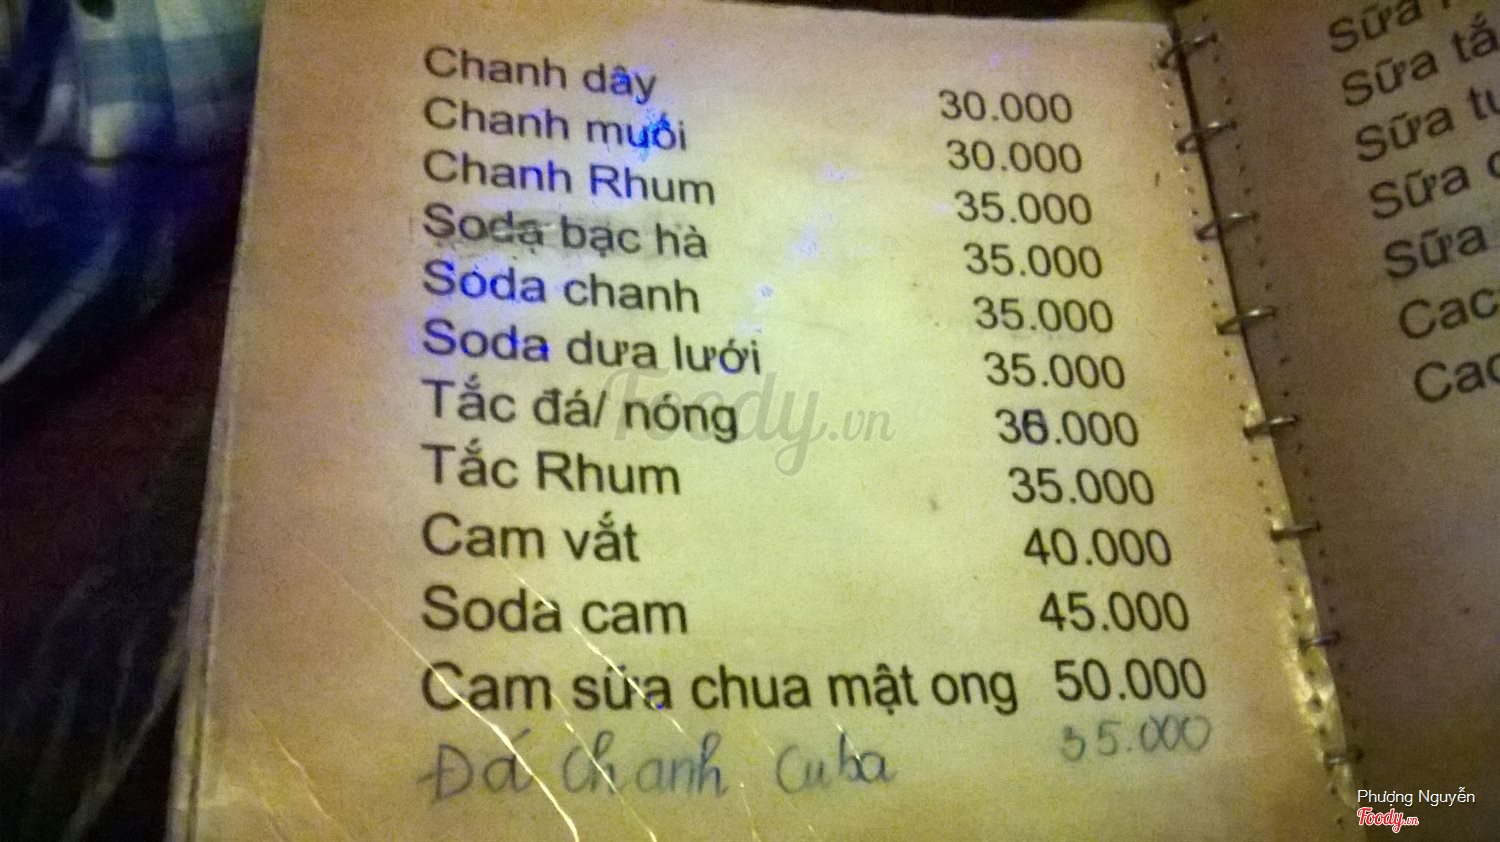 Chanh dây 30.000
Chanh muối 30.000
Chanh Rhum 35.000
Soda bạc hà 35.000
Soda chanh 35.000
Soda dưa lưới 35.000
Tắc đá/ nóng 36.000
Tắc Rhum 35.000
Cam vắt 40.000
Soda cam 45.000
Cam sữa chua mật ong 50.000
Đá chanh Cuba 35.000
Sữa
Sữa
Sữa
Sữa
Sữa
Foody.vn
Phượng Nguyễn
Foody.vn